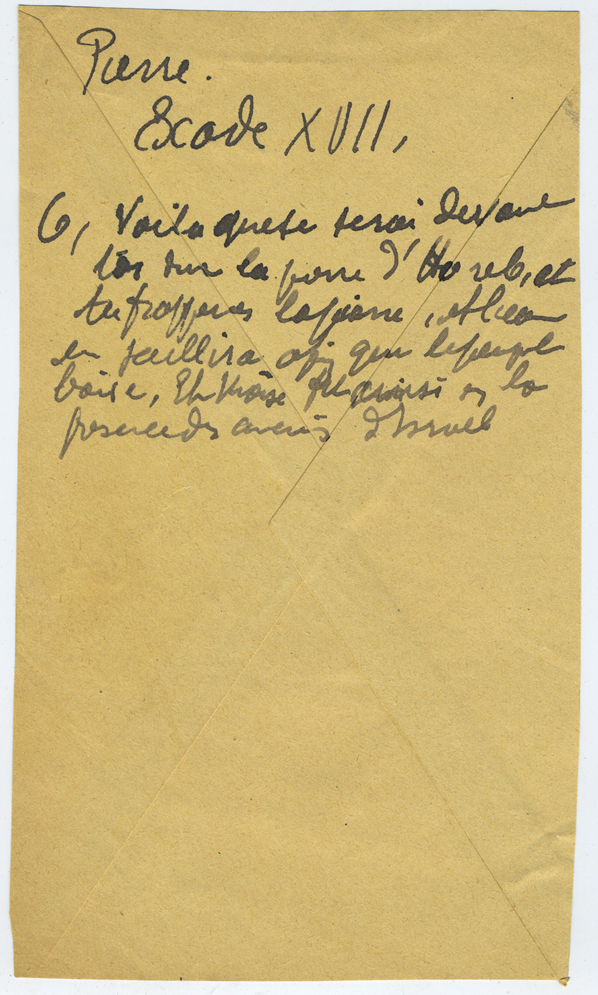 Pierre.
Exode XVII,
6, Voila que je serai devant
toi sur la pierre d'Horeb, et
tu frapperas la pierre, et l'eau
en jaillira afin que le peuple
boive, Et Moïse fit ainsi en la
presence des anciens d'Israel